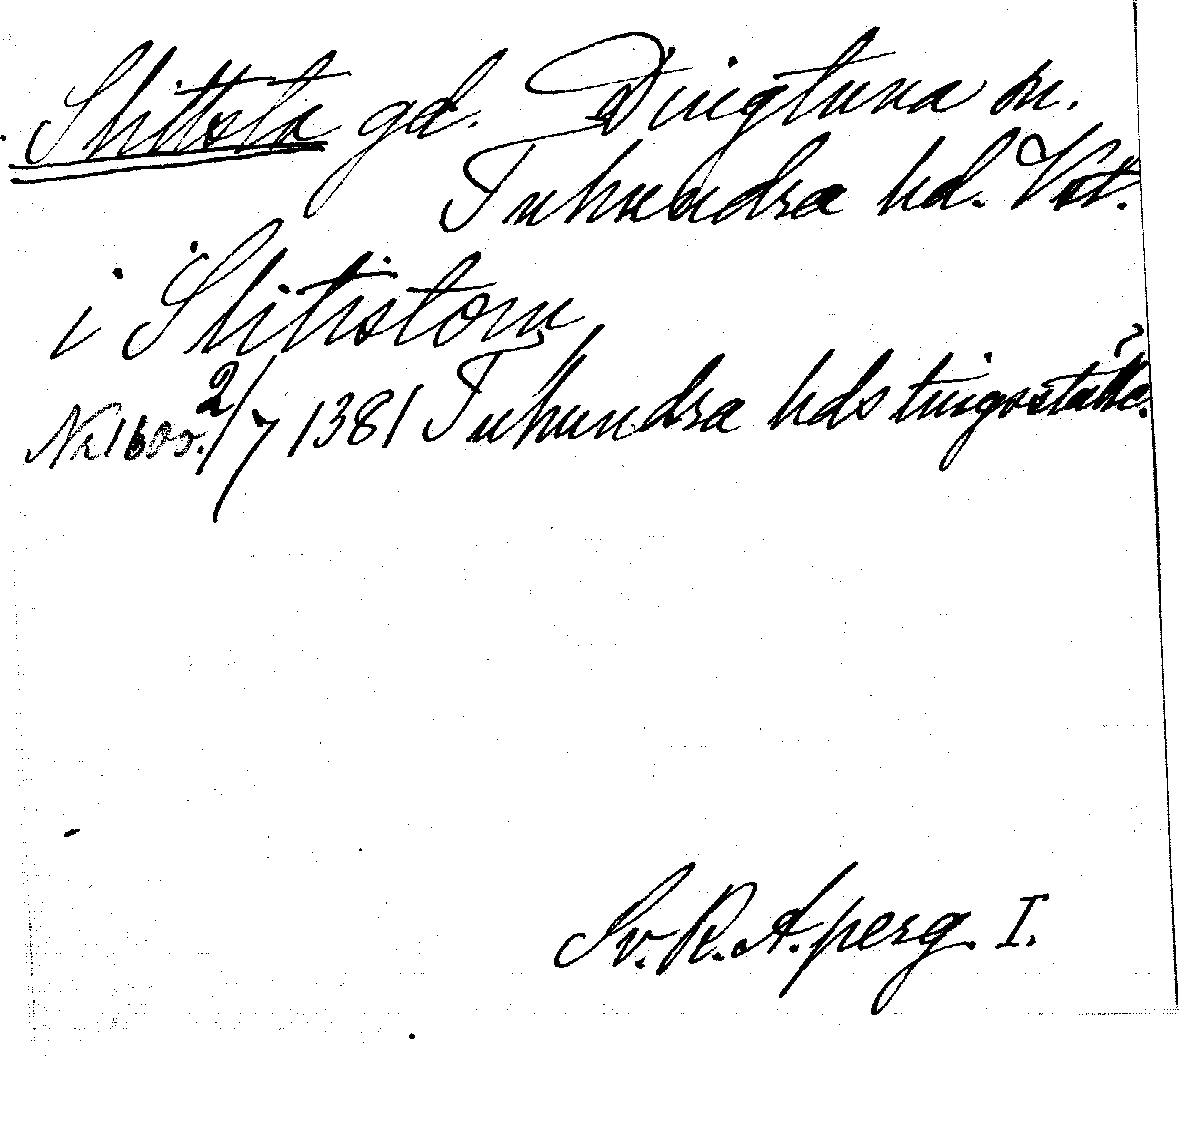 Skittsta gd. Dingtuna sn.
Tuhundra hd. Vst.
i Skitistom
Nr 1600. 2/7 1381 Tuhundra hds tingsställe.
Sv. R. A. perg. I.